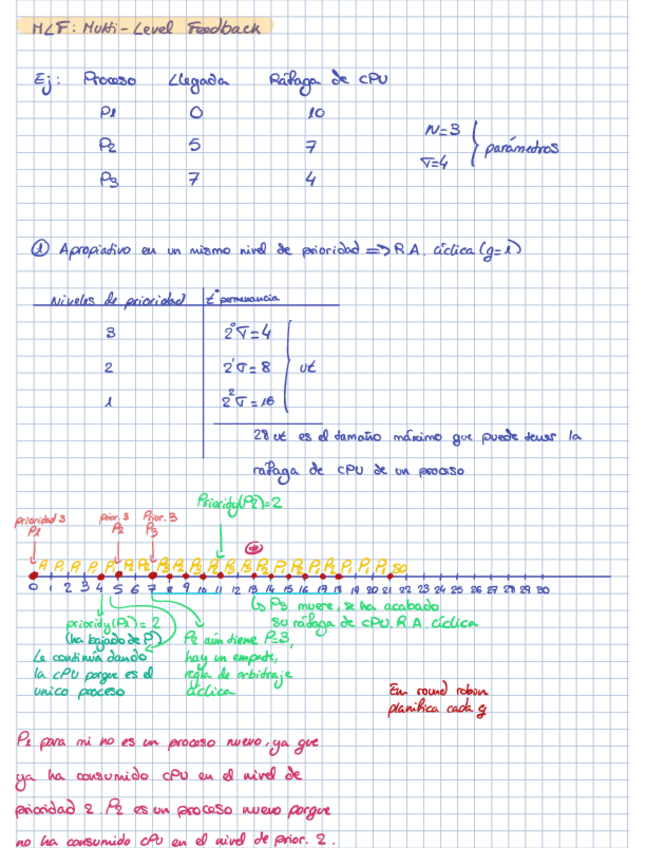 MLF: Multi-Level Feedback
Ej: Proceso Llegada Ráfaga de CPU
P1 0 10
P2 5 7
P3 7 4
N=3
∇=4
parámetros
① Apropiativo en un mismo nivel de prioridad => R.A. cíclica (q=1)
Niveles de prioridad tº permanencia
3 2⁰∇=4
2 2¹∇=8
1 2²∇=16
ut
28 ut es el tamaño máximo que puede tener la
ráfaga de CPU de un proceso
Priority(P2)=2
prioridad 3
P1
prior. 3
P2
Prior. 3
P3
0 1 2 3 4 5 6 7 8 9 10 11 12 13 14 15 16 17 18 19 20 21 22 23 24 25 26 27 28 29 30
↳ P3 muere, se ha acabado
su ráfaga de CPU. R.A. cíclica
priority(P1) = 2
(ha bajado de P)
Le continúa dando
la CPU porque es el
único proceso
P2 aún tiene P=3,
hay un empate,
regla de arbitraje
cíclica
En round robin
planifica cada q
P1 para mi no es un proceso nuevo, ya que
ya ha consumido CPU en el nivel de
prioridad 2. P2 es un proceso nuevo porque
no ha consumido CPU en el nivel de prior. 2.